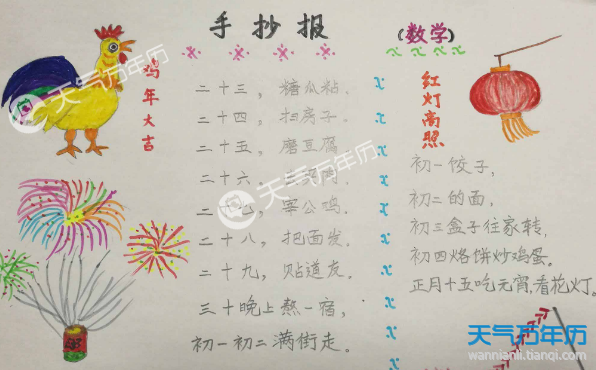 手抄报
(数学)
鸡年大吉
二十三，糖瓜粘.
二十四，扫房子.
二十五，磨豆腐.
二十六，
二十七，宰公鸡.
二十八，把面发.
二十九，贴道友.
三十晚上熬一宿，
初一初二满街走.
红灯高照
初一饺子，
初二的面，
初三盒子往家转，
初四烙饼炒鸡蛋。
正月十五吃元宵，看花灯。
天气万年历
天气万年历
天气万年历
天气万年历
wannianli.tianqi.com